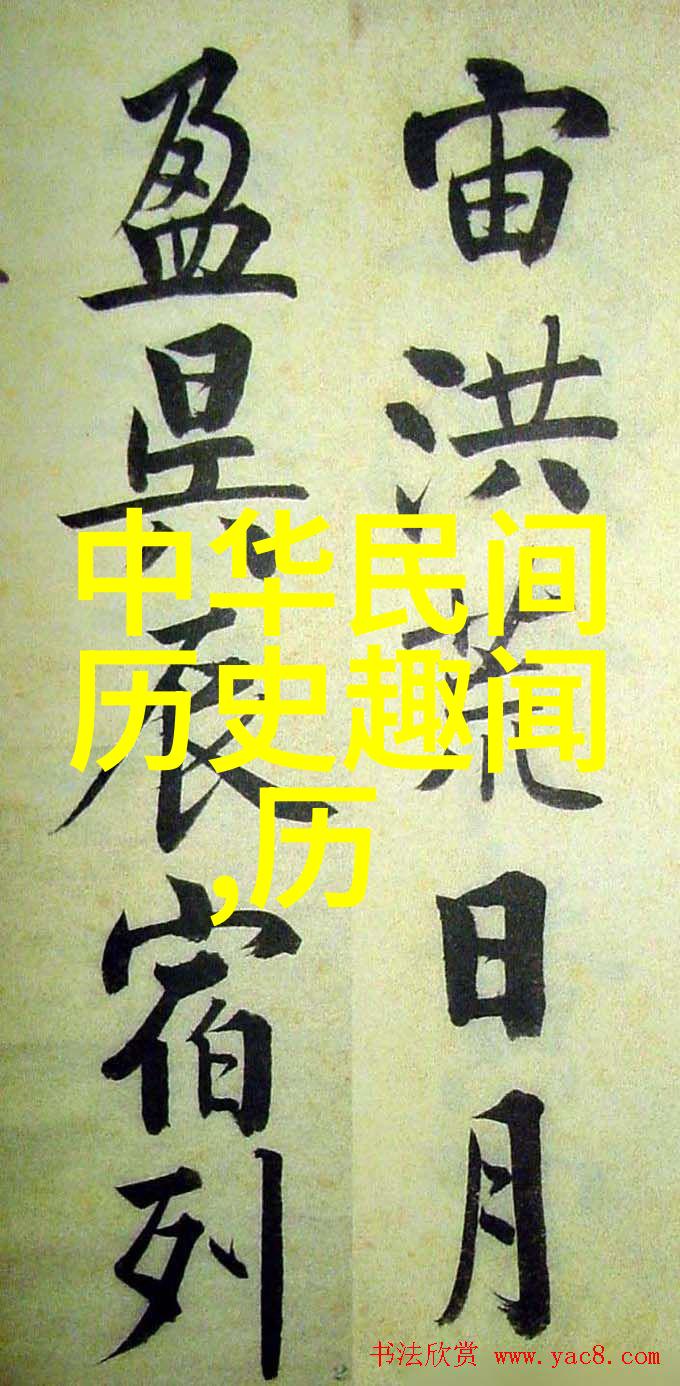 宙洪荒日月
盈昃辰宿列
中华民间
历史趣闻
,历
书法欣赏 www.yac8.com